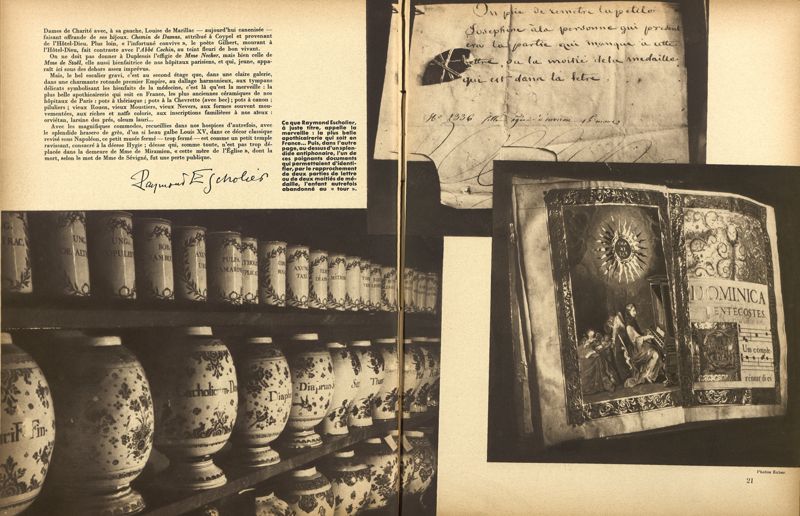 Dames de Charité avec, à sa gauche, Louise de Marillac — aujourd'hui canonisée —
faisant offrande de ses bijoux. Chemin de Damas, attribué à Coypel et provenant
de l'Hôtel-Dieu. Plus loin, « l'infortuné convive », le poète Gilbert, mourant à
l'Hôtel-Dieu, fait contraste avec l'Abbé Cochin, au teint fleuri de bon vivant.
On ne doit pas donner à Duplessis l'effigie de Mme Necker, mais bien celle de
Mme de Staël, elle aussi bienfaitrice de nos hôpitaux parisiens, et qui, jeune, appa-
raît ici sous des dehors assez imprévus.
Mais, le bel escalier gravi, c'est au second étage que, dans une claire galerie,
dans une charmante rotonde premier Empire, au dallage harmonieux, aux tympans
délicats symbolisant les bienfaits de la médecine, c'est là qu'est la merveille : la
plus belle apothicairerie qui soit en France, les plus anciennes céramiques de nos
hôpitaux de Paris : pots à thériaque ; pots à la Chevrette (avec bec) ; pots à canon ;
piluliers ; vieux Rouen, vieux Moustiers, vieux Nevers, aux formes souvent mou-
vementées, aux riches et naïfs coloris, aux inscriptions familières à nos aïeux :
orviétan, lartine des prés, oleum lauri...
Avec les magnifiques commodes, recueillies dans nos hospices d'autrefois, avec
le splendide brasero de grès, d'un si beau galbe Louis XV, dans ce décor classique
revisé sous Napoléon, ce petit musée fermé — trop fermé — est comme un petit temple
ravissant, consacré à la déesse Hygie ; déesse qui, comme toute, n'est pas trop dé-
placée dans la demeure de Mme de Miramion, « cette mère de l'Église », dont la
mort, selon le mot de Mme de Sévigné, fut une perte publique.
Raymond Escholier
Ce que Raymond Escholier,
à juste titre, appelle la
merveille : la plus belle
apothicairerie qui soit en
France... Puis, dans l'autre
page, au-dessus d'un splen-
dide antiphonaire, l'un de
ces poignants documents
qui permettaient d'identi-
fier, par le rapprochement
de deux parties de lettre
ou de deux moitiés de mé-
daille, l'enfant autrefois
abandonné au « tour ».
On prie de remetre la petite
Josephine à la personne qui present
era la partie qui manque a cette
lettre, ou la moitié de la medaille
qui est dans la letre
No 1336
DOMINICA
PENTECOSTES
Un comple
Diaphr
Diaprun
Photos Kollar
21